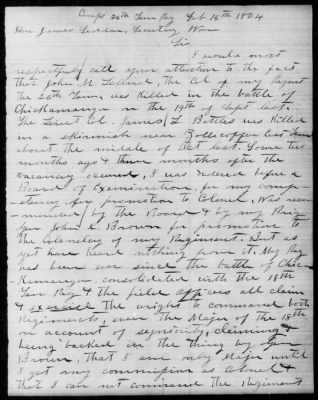 Camp 26th Tenn Reg Feb 15th 1864
Hon James Seddon, Secretary War
Sir
I would most
respectfully call your attention to the fact
that John M. Lillard, the Col of my Regmt
the 26th Tenn, was Killed in the battle of
Chickamauga on the 19th of Sept last.
The Lieut Col James L Bottles was Killed
in a skirmish near Zollicoffer East Tenn
about the middle of Oct last. Some two
months ago & three months after the
vacancy occured, I was ordered before a
Board of Examination, for my compe-
tency for promotion to Colonel, Was recom
-mended by the Board & by my Brig
Gen John C. Brown for promotion to
the Colonelcy of my Regiment. But as
yet have heard nothing from it. My Reg
has been ever since the battle of Chic-
Kamauga consolidated with the 18th
Tenn Reg & the field officers all claim
& exercise the wright to command both
Regiments, even the Major of the 18th
on account of seignority, claiming &
being backed in the thing by Gen
Brown, that I am only Major until
I get my commission as Colonel &
that I can not command the Regiments